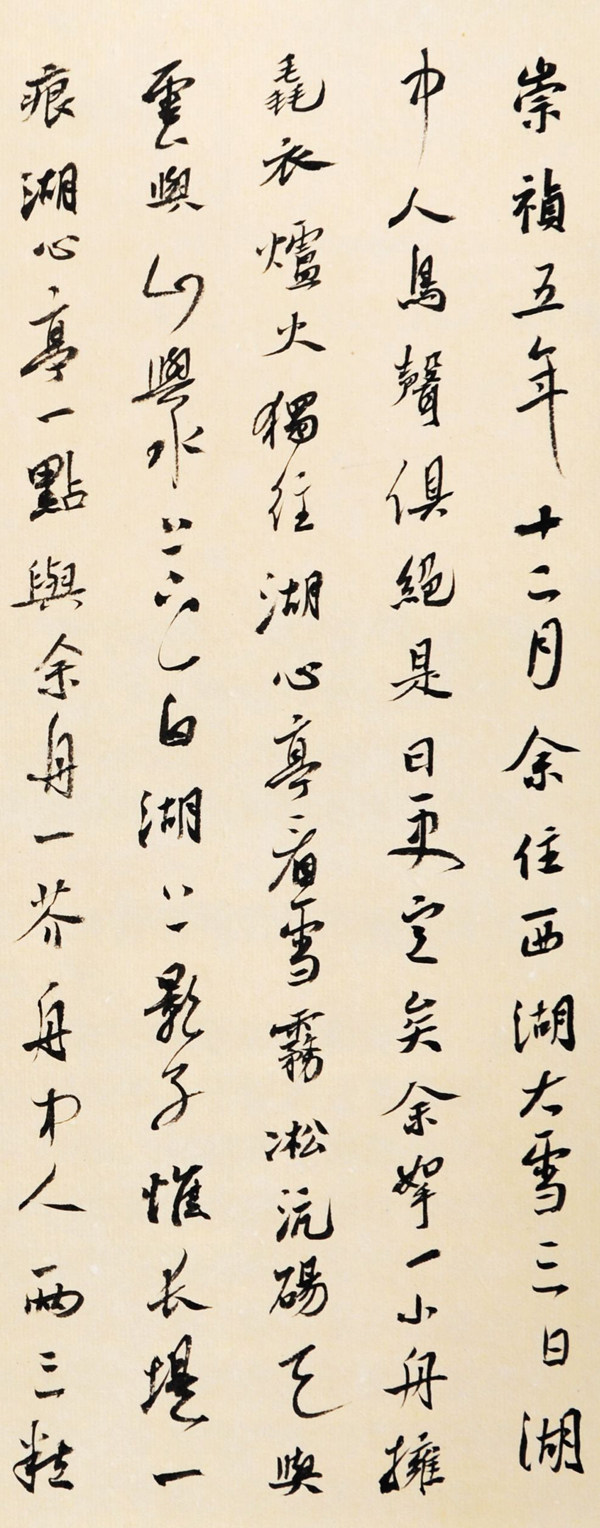 崇禎五年十二月余住西湖大雪三日湖
中人鳥聲俱絕是日更定矣余拏一小舟擁
毳衣爐火獨往湖心亭看雪霧凇沆碭天與
雲與山與水上下一白湖上影子惟長堤一
痕湖心亭一點與余舟一芥舟中人兩三粒